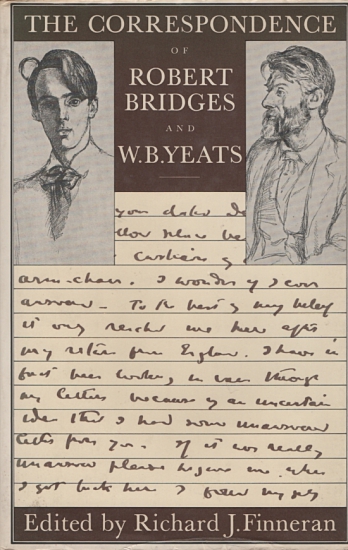 THE CORRESPONDENCE
OF
ROBERT
BRIDGES
AND
W.B.YEATS
you
arm-chair. I wonder if I ever
answered — To the best of my belief
it only reached me here after
my return from England. I have in
fact been looking in vain through
my letters because of an uncertain
idea that I had some unanswered
letter from you. If it was really
unanswered please forgive me. When
I got back here I found my
Edited by Richard J. Finneran